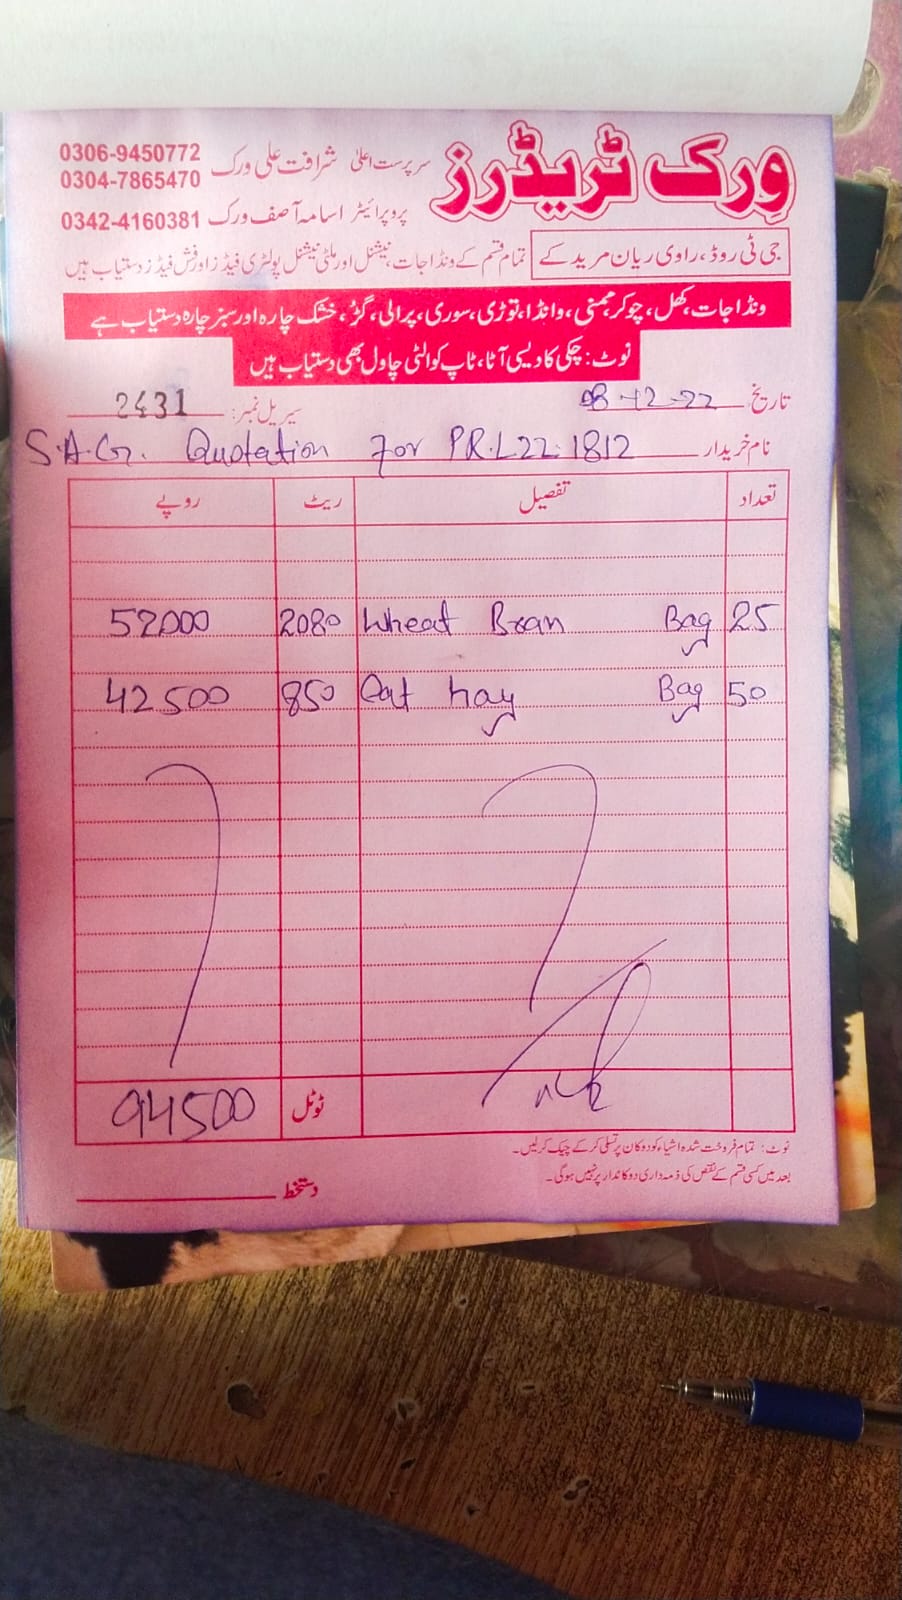 ورک ٹریڈرز
سرپرست اعلیٰ شرافت علی ورک 0306-9450772
0304-7865470
پروپرائیٹر اسامہ آصف ورک 0342-4160381
جی ٹی روڈ، راوی ریان مریدکے
تمام قسم کے ونڈا جات، نیشنل اور ملٹی نیشنل پولٹری فیڈز اور فش فیڈز دستیاب ہیں
ونڈا جات، کھل، چوکر، ممنی، وانڈا، توڑی، سوری، پرالی، گڑ، خشک چارہ اور سبز چارہ دستیاب ہے
نوٹ: چکی کا دیسی آٹا، ٹاپ کوالٹی چاول بھی دستیاب ہیں
تاریخ 08-12-22 سیریل نمبر: 2431
نام خریدار S.A.G. Quotation for PR.L22.1812
تعداد تفصیل ریٹ روپے
25 Wheat Bran Bag 2080 52000
50 Oat hay Bag 850 42500
ٹوٹل 94500
نوٹ: تمام فروخت شدہ اشیاء کو دوکان پر تسلی کر کے چیک کر لیں۔
بعد میں کسی قسم کے نقص کی ذمہ داری دوکاندار پر نہیں ہوگی۔
دستخط